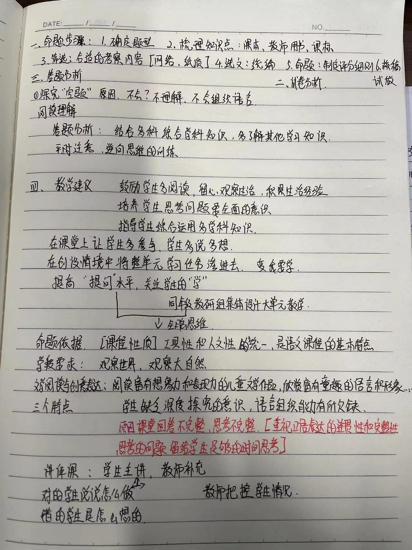 DATE: / /
NO.
一、命题步骤：1.确定题型 2.梳理知识点：课本、教师用书、课标
3.筛选：合适的考察内容[网络，纸质] 4.选文：统编 5.命题：制定评分细则 6.核检
三、卷题分析 二、试卷分析 试做
①探究“空题”原因，不会？不理解，不会组织语言
阅读理解
卷题分析：结合多科综合学科知识，多了解其他学习知识
平时注意，逆向思维的训练
四、教学建议 鼓励学生多阅读，留心观察生活，积累生活经验
培养学生思考问题要全面的意识
指导学生综合运用多学科知识
在课堂上让学生多参与，学生多说多想
在创设情境中将整单元学习任务落进去，变教学
提高“提问”水平，关注学生的“学”
同年级教研组集体设计大单元教学
→ 逻辑思维
命题依据 [课程性质] 工具性和人文性的统一，是语文课程的基本特点
学段要求：观察世界，观察大自然
文学阅读与创意表达：阅读富有想象力和表现力的儿童文学作品，欣赏富有童趣的语言和形象
三个特点 学生缺乏深度探究的意识，语言组织能力有所欠缺
原因课堂回答不完整，思考不完整[重视口语表达的逻辑性和完整性
思考的问题留给学生足够的时间思考]
讲评课：学生主讲，教师补充
对的学生说说怎么做 教师把控学情况
错的学生是怎么想的